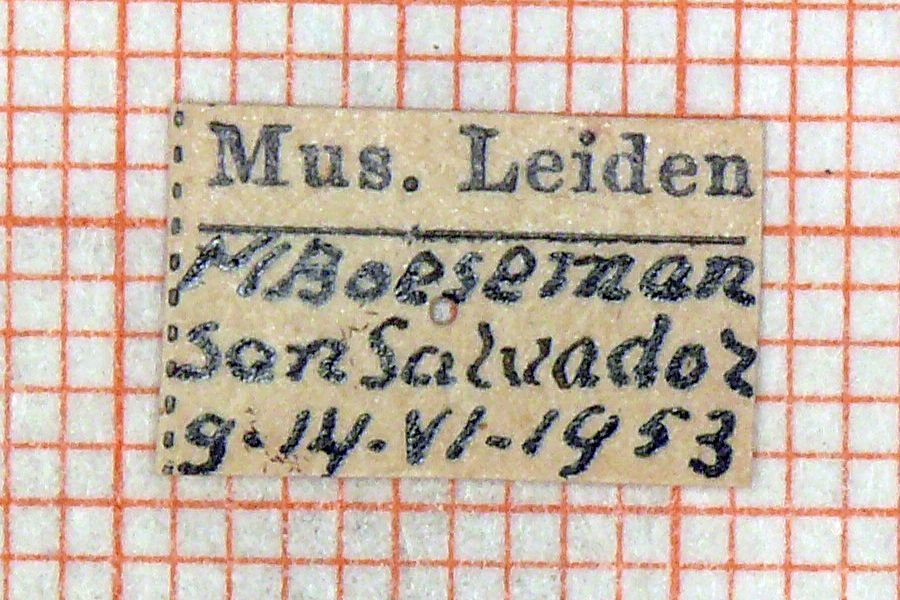 Mus. Leiden
M Boeseman
Son Salvador
9-14-VI-1953